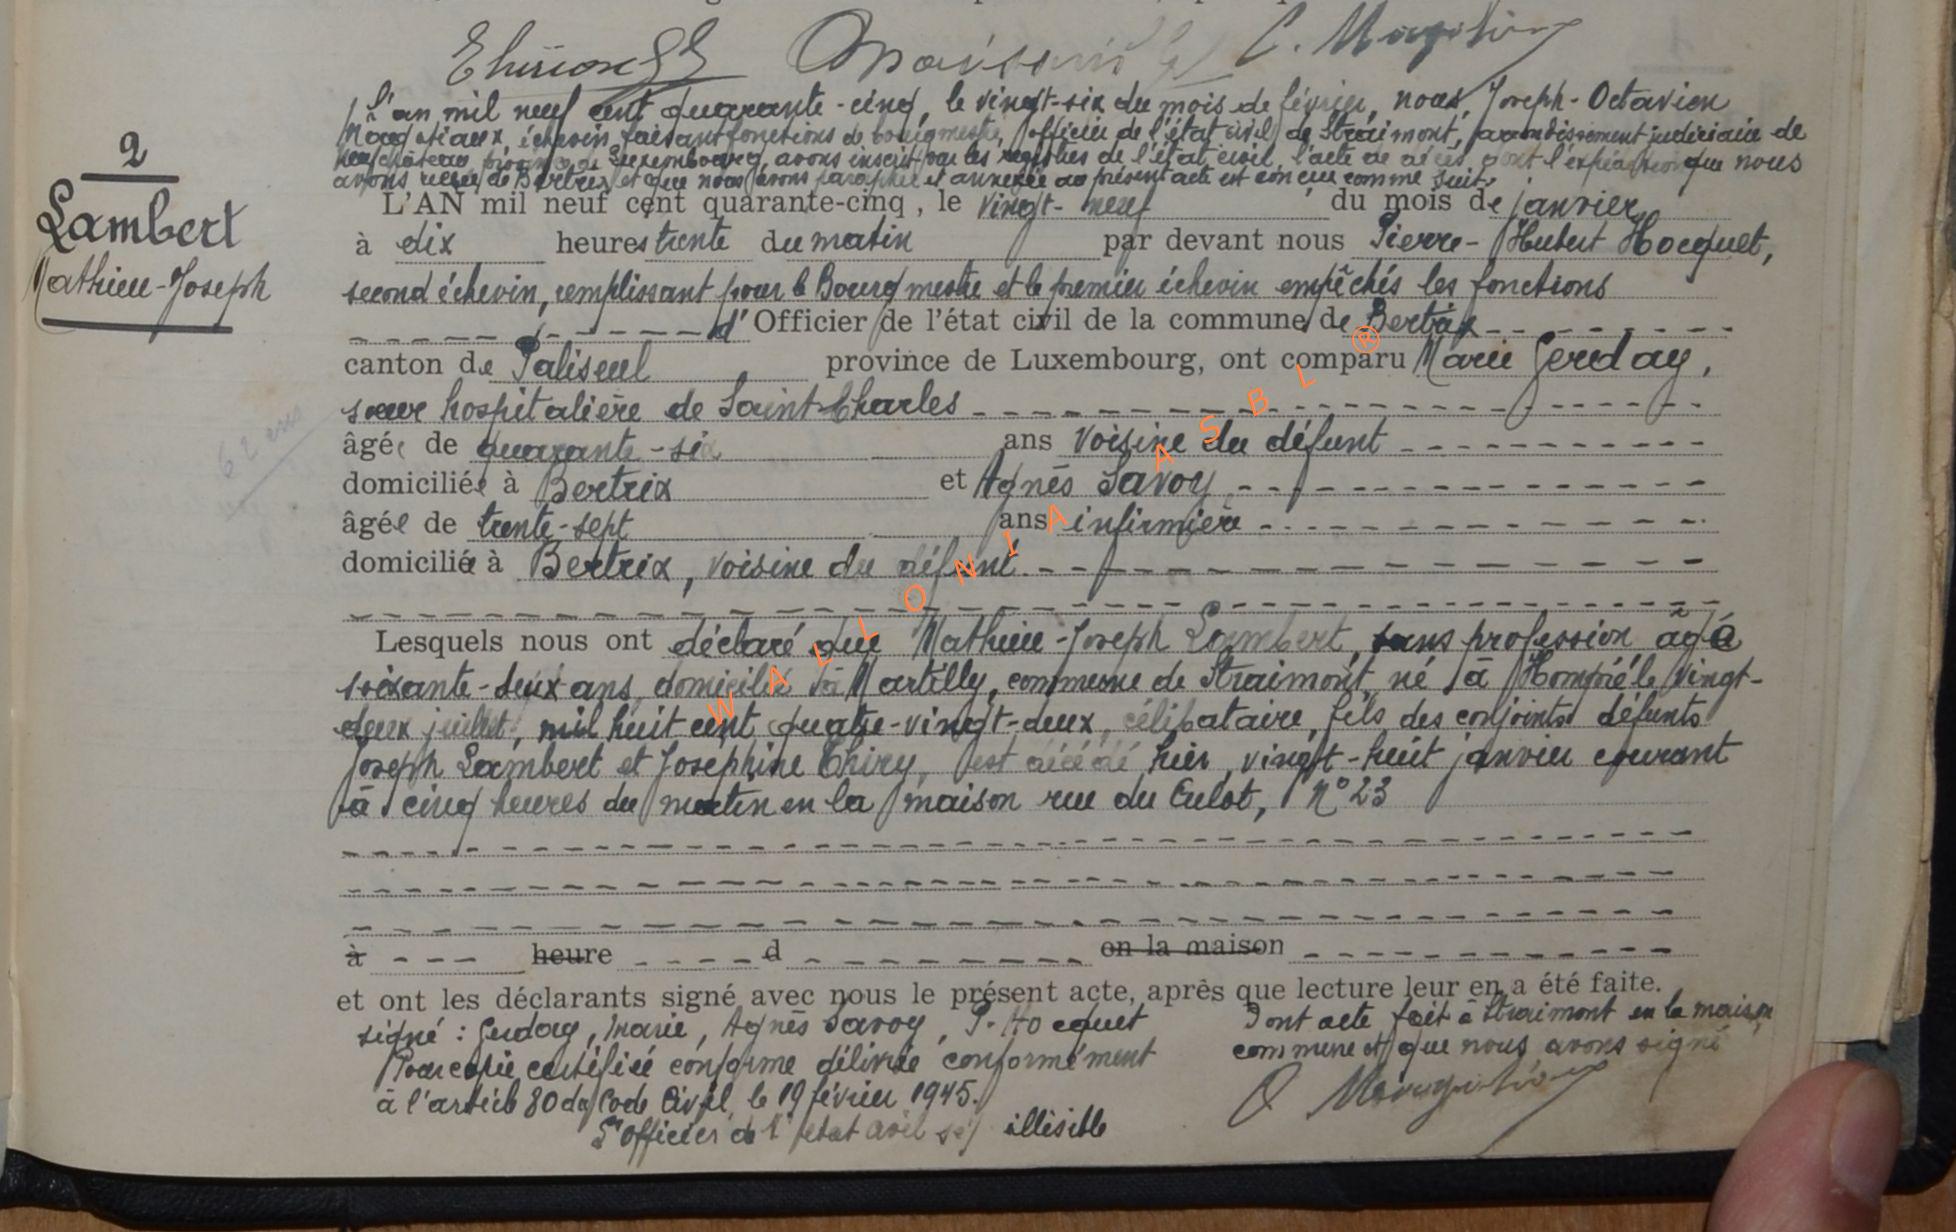 Thirion
L'an mil neuf cent quarante-cinq, le vingt-six du mois de février, nous, Joseph-Octavien
échevin faisant fonctions de bourgmestre, officier de l'état civil de Straimont, arrondissement judiciaire de
Neufchâteau, province de Luxembourg, avons inscrit sur les registres de l'état civil, l'acte de décès, dont l'expédition que nous
avons reçue de Bertrix et que nous avons paraphée et annexée au présent acte est conçue comme suit.
2
Lambert
Mathieu-Joseph
L'AN mil neuf cent quarante-cinq, le vingt-neuf du mois de janvier
à dix heures trente du matin par devant nous Pierre-Hubert Hocquet,
second échevin, remplissant pour le Bourgmestre et le premier échevin empêchés les fonctions
d'Officier de l'état civil de la commune de Bertrix
canton de Paliseul province de Luxembourg, ont comparu Marie Gerday,
sœur hospitalière de Saint-Charles
62 ans
âgée de quarante-six ans voisine du défunt
domiciliée à Bertrix et Agnès Savoy
âgée de trente-sept ans infirmière
domiciliée à Bertrix, voisine du défunt
Lesquels nous ont déclaré que Mathieu-Joseph Lambert, sans profession âgé
soixante-deux ans, domicilié à Martilly, commune de Straimont, né à Hompré le vingt-
deux juillet, mil huit cent quatre-vingt-deux, célibataire, fils des conjoints défunts
Joseph Lambert et Josephine Thiry, est décédé hier, vingt-huit janvier courant
à cinq heures du matin en la maison rue du Culot, N° 23
à heure d en la maison
et ont les déclarants signé avec nous le présent acte, après que lecture leur en a été faite.
signé : Gerday, Marie, Agnès Savoy, P. Hocquet
Pour copie certifiée conforme délivrée conformément
à l'article 80 du Code Civil, le 19 février 1945.
L'officier de l'état civil sé) illisible
Dont acte fait à Straimont en la maison
commune et que nous avons signé
WALLONIA ASBL ®